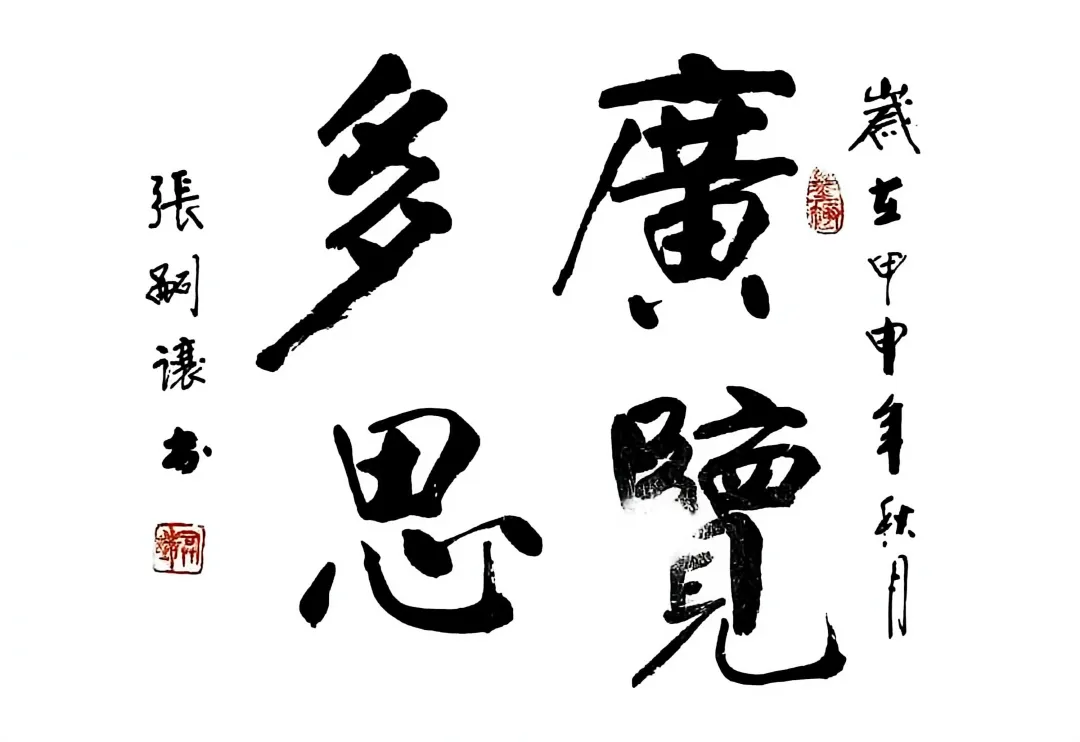 歲在甲申年秋月
廣覽
多思
張嗣讓书